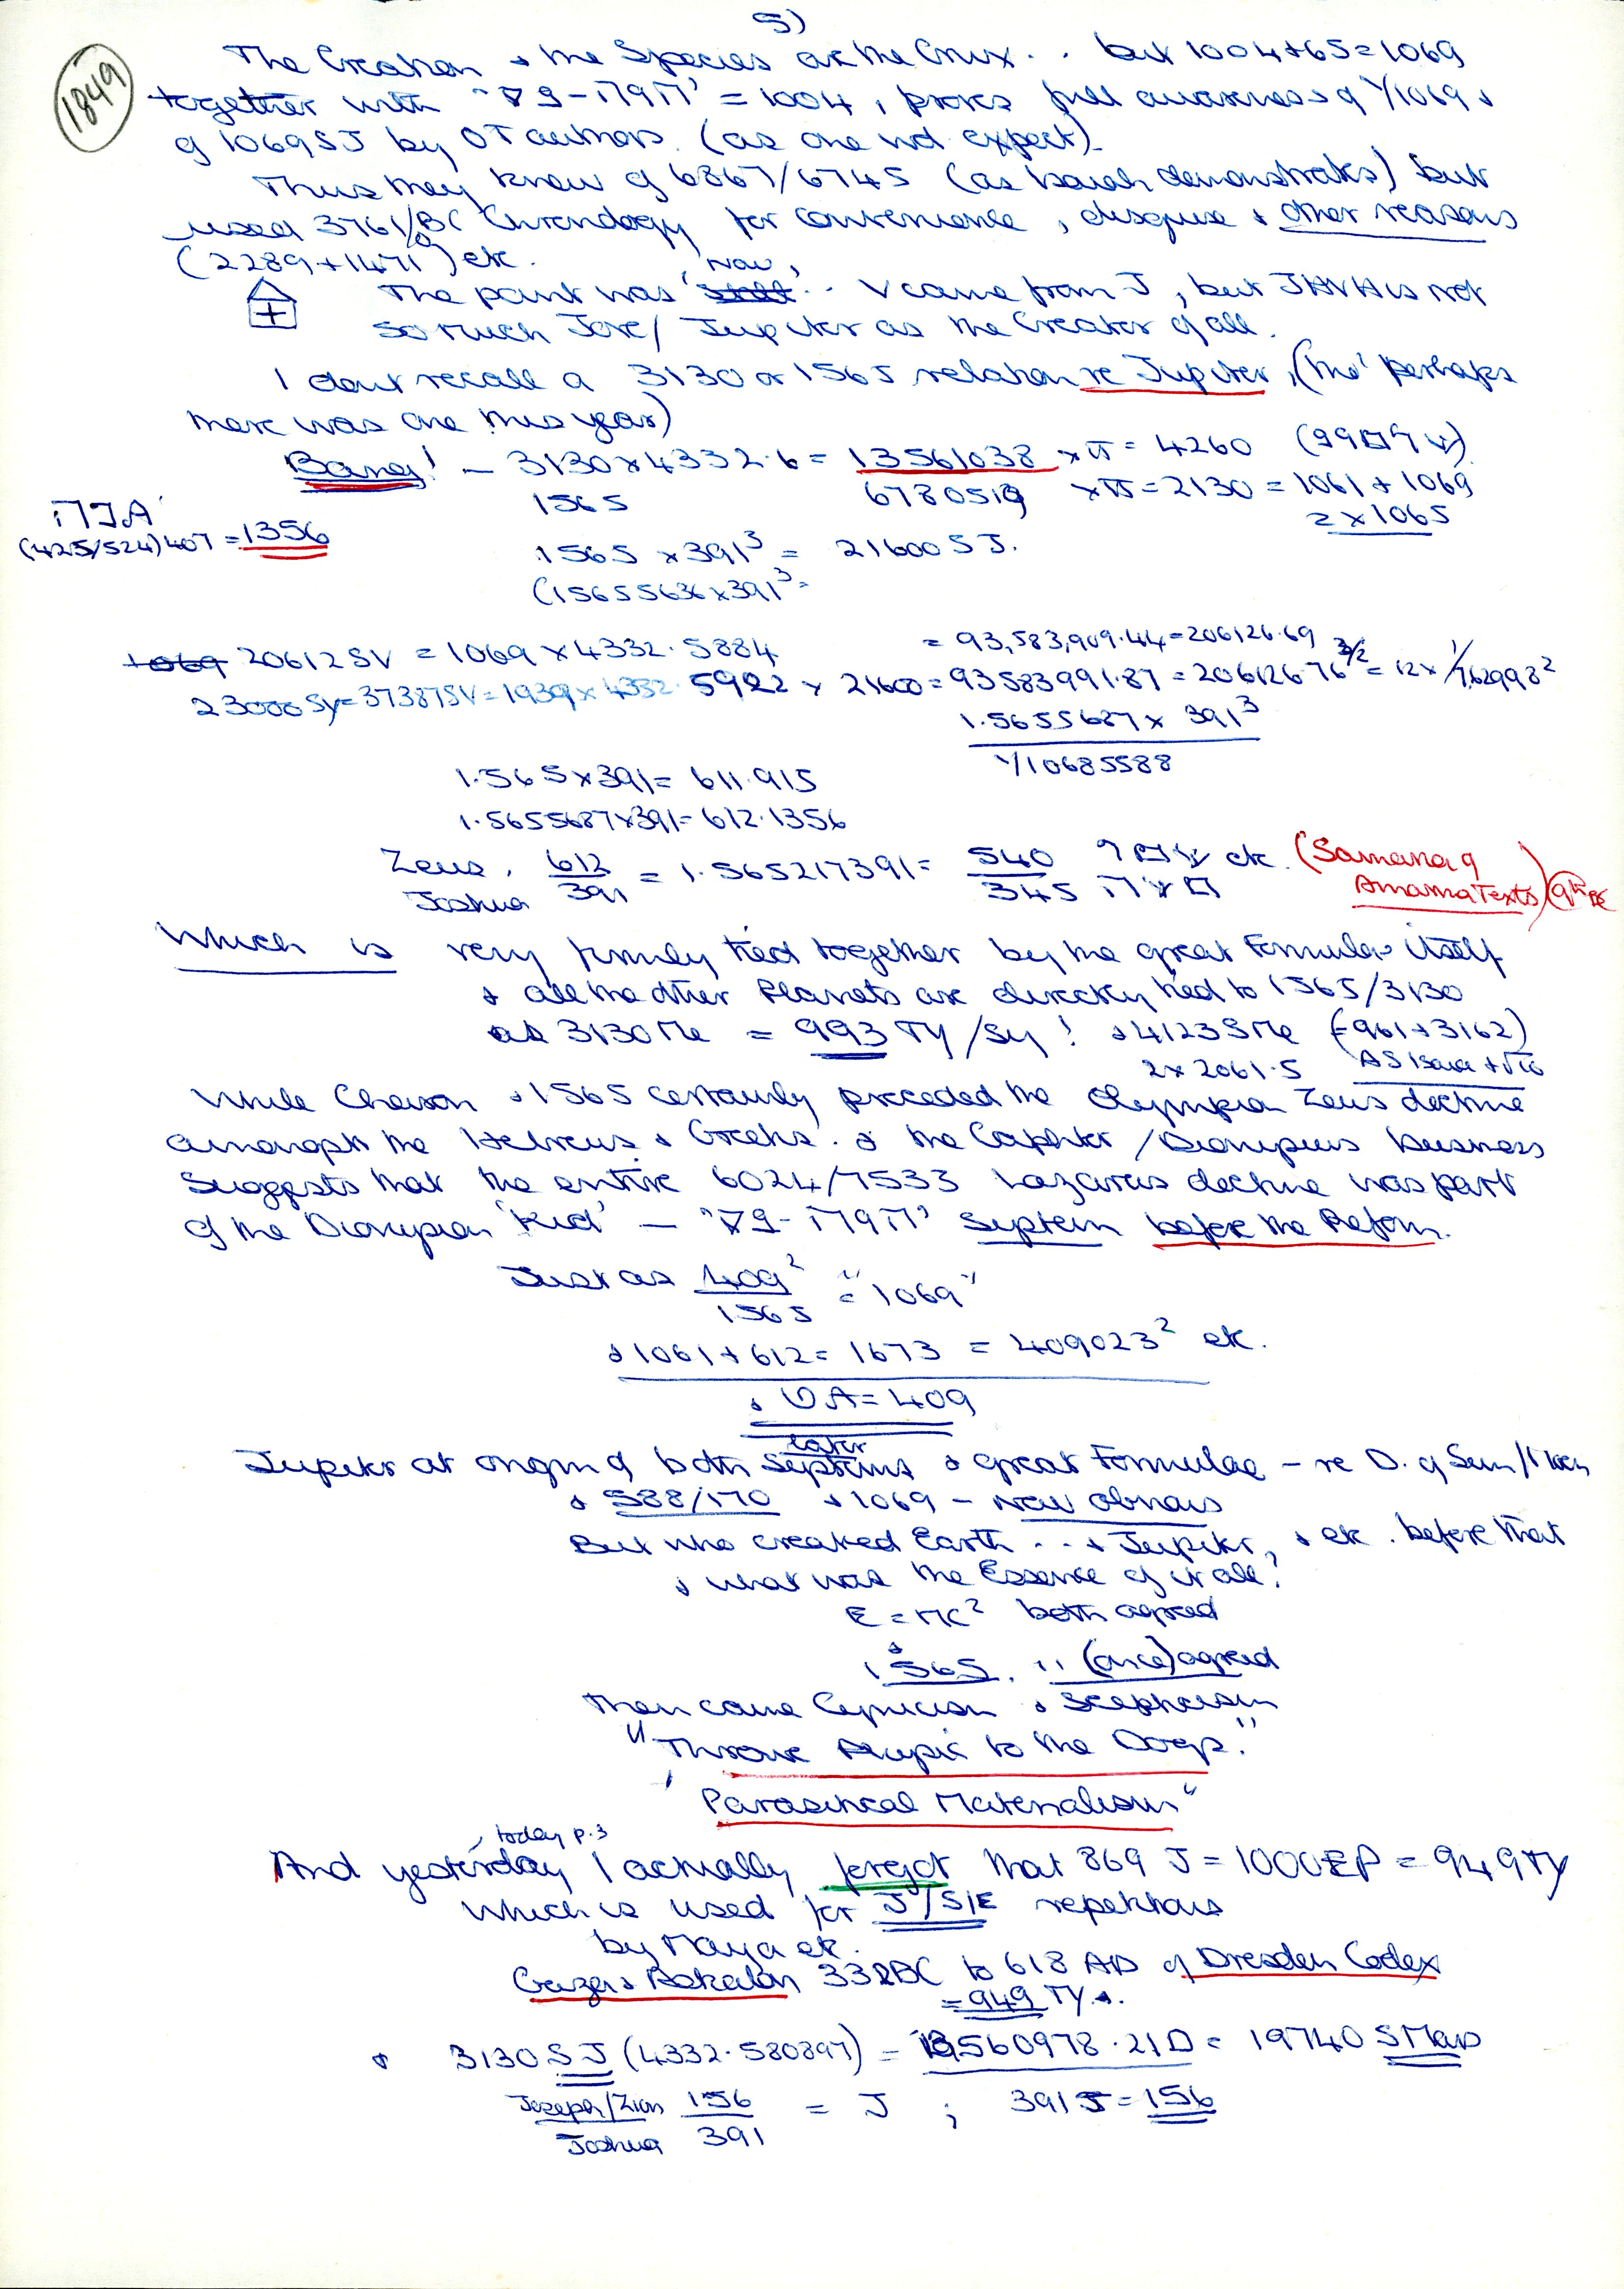 5)
1849
The Creation & the Species are the Crux . . but 1004+65=1069
together with = 1004, proves full awareness of Y/1069 &
of 1069SJ by OT authors. (as one wd expect).
Thus they knew of 6867/6745 (as Isaiah demonstrates) but
used 3761/0 BC Chronology for convenience, disguise & other reasons
(2289+1471) etc.
The point was 'Now' . . V came from J, but JHVH is not
so much Jove/Jupiter as the Creator of all.
I dont recall a 3130 or 1565 relation re Jupiter, (tho' perhaps
there was one this year)
Bang! – 3130×4332.6 = 13561038 ×π = 4260
1565 6780519 ×π = 2130 = 1061+1069
2×1065
(425/524) 407 = 1356
1565 ×391³ = 21600 SJ.
(15655636×391³=
1069 20612SV = 1069×4332.5884 = 93,583,909.44=206126.69
23000Sy=37387SV=1939×4332.5922 × 21600=93583991.87 = 20612676 3/2 = 12× 1/7.62998²
1.5655687× 391³
Y/10685588
1.565×391= 611.915
1.5655687×391=612.1356
Zeus. 612/391 = 1.565217391= 540/345 etc. (Samana of
Joshua Amarna Texts)
Which is very firmly tied together by the great Formulae itself
& all the other Planets are directly tied to 1565/3130
as 3130 Me = 993 TY/Sy! & 4123SMe (=961+3162)
2×2061.5 AS Isaac +√10
While Cheiron & 1565 certainly preceded the Olympian Zeus doctrine
amongst the Hebrews & Greeks. & the Caphtor/Dionysius business
suggests that the entire 6024/7533 Lazarus doctrine was part
of the Dionysian 'Kid' – System before the Reform.
Just as 409²/1565 = "1069"
& 1061+612= 1673 = 409023² etc.
& = 409
Jupiter at origin of both later systems & great Formulae – re D. of Sun/
& 588/170 & 1069 – Now obvious
But who created Earth . . & Jupiter, & etc. before that
& what was the Essence of it all?
E = MC² both agreed
&
1565. " (once) agreed
Then came Cynicism & Scepticism
"Throw to the Dogs."
"Parasitical Materialism"
today p.3
And yesterday I actually forgot that 869 J = 1000EP = 949TY
which is used for J/S/E repetitions
by Maya etc.
Gaza & Askalon 332BC to 618 AD of Dresden Codex
= 949 TY.
& 3130 SJ (4332.580897) = 13560978.21D = 19740 SMars
Joseph/Zion 156/391 = J ; 391 J = 156
Joshua